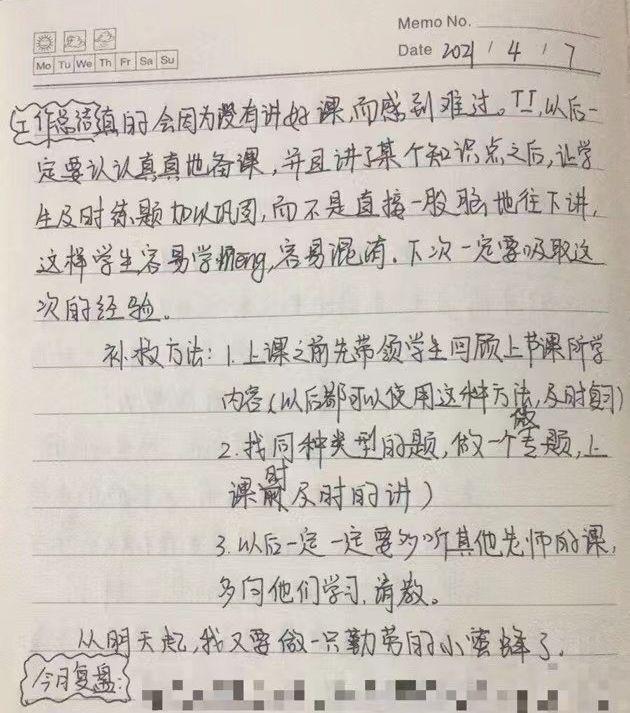 Memo No.
Mo Tu We Th Fr Sa Su
Date 2021 / 4 / 7
工作总结 真的会因为没有讲好课,而感到难过。TT,以后一
定要认认真真地备课,并且讲了某个知识点之后,让学
生及时练题加以巩固,而不是直接一股脑地往下讲,
这样学生容易学meng,容易混淆.下次一定要吸取这
次的经验。
补救方法:1.上课之前先带领学生回顾上节课所学
内容(以后都可以使用这种方法,及时复习)
2.找同种类型的题,做一个专题,上
课时及时的讲)
3.以后一定一定要多听其他老师的课,
多向他们学习,请教。
从明天起,我又要做一只勤劳的小蜜蜂了.
今日复盘: